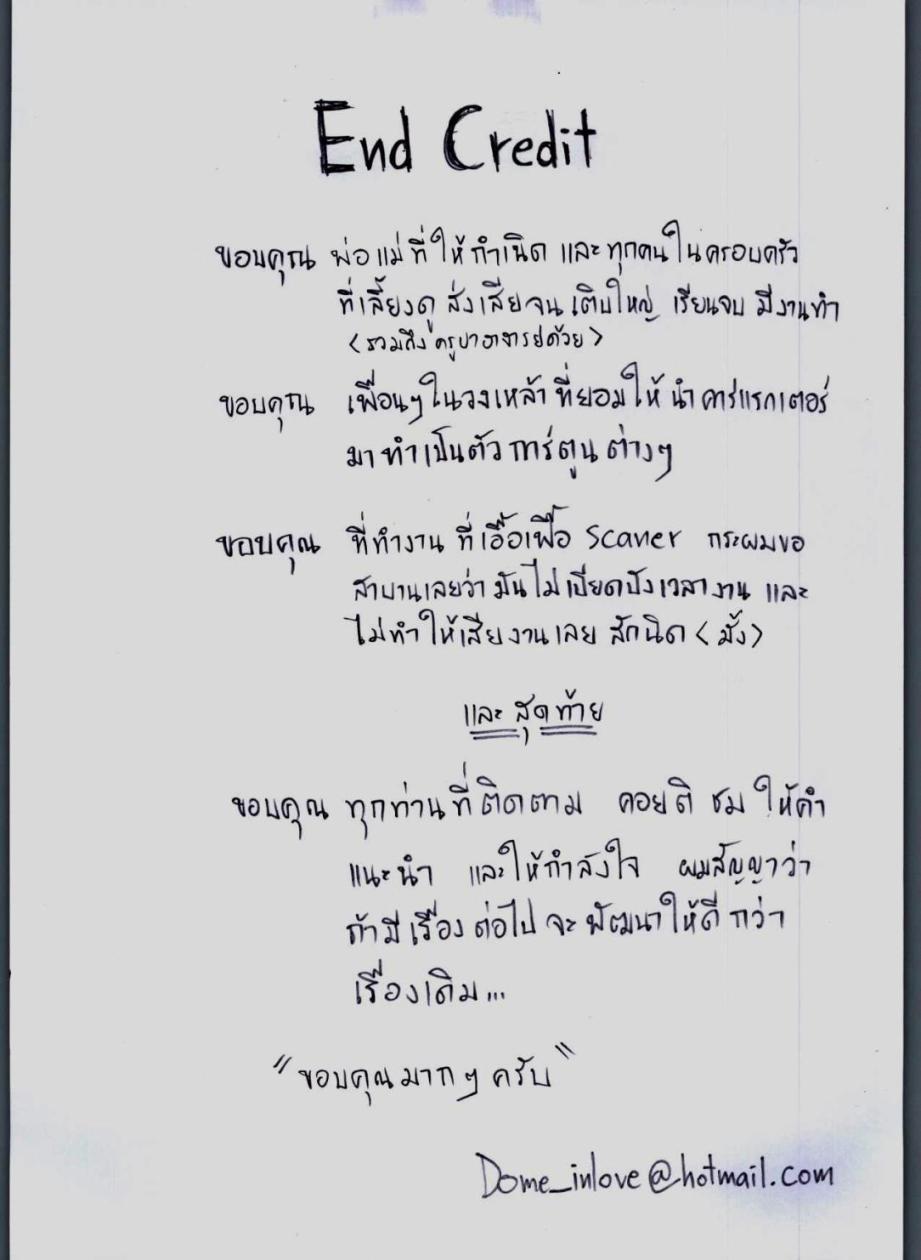 End Credit
ขอบคุณ พ่อแม่ที่ให้กำเนิด และทุกคนในครอบครัว
ที่เลี้ยงดู ส่งเสียจนเติบใหญ่ เรียนจบ มีงานทำ
<รวมถึงครูบาอาจารย์ด้วย>
ขอบคุณ เพื่อนๆในวงเหล้าที่ยอมให้นำคาร์แรกเตอร์
มาทำเป็นตัวการ์ตูนต่างๆ
ขอบคุณ ที่ทำงาน ที่เอื้อเฟื้อ Scaner กระผมขอ
สาบานเลยว่ามันไม่เบียดบังเวลางาน และ
ไม่ทำให้เสียงานเลย สักนิด <มั้ง>
และสุดท้าย
ขอบคุณ ทุกท่านที่ติดตาม คอยติ ชม ให้คำ
แนะนำ และให้กำลังใจ ผมสัญญาว่า
ถ้ามีเรื่องต่อไป จะพัฒนาให้ดีกว่า
เรื่องเดิม...
"ขอบคุณมากๆ ครับ"
Dome_inlove@hotmail.com